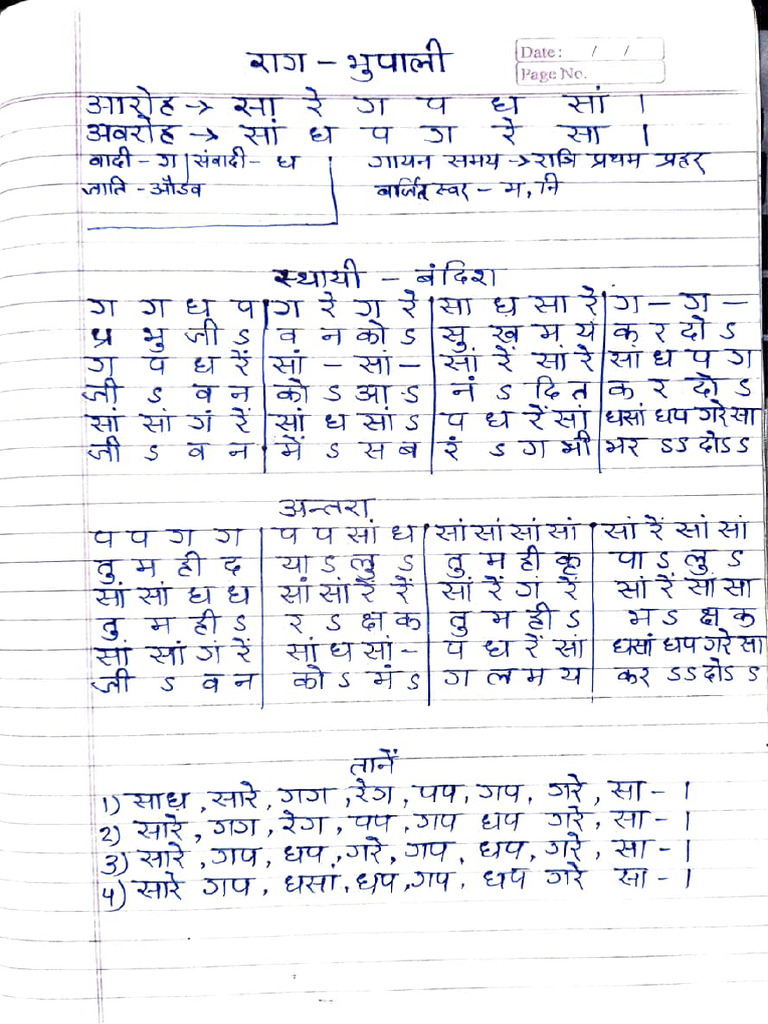 राग - भुपाली
Date: / /
Page No.
आरोह → सा रे ग प ध सां ।
अवरोह → सां ध प ग रे सा ।
वादी - ग | संवादी - ध गायन समय → रात्रि प्रथम प्रहर
जाति - औडव वर्जित स्वर - म, नि
स्थायी - बंदिश
ग ग ध प | ग रे ग रे | सा ध सा रे | ग - ग -
प्र भु जी ऽ | व न को ऽ | सु ख म य | क र दो ऽ
ग प ध रें | सां - सां - | सां रें सां रें | सां ध प ग
जी ऽ व न | को ऽ आ ऽ | नं ऽ दि त | क र दो ऽ
सां सां गं रें | सां ध सां ऽ | प ध रें सां | धसां धप गरे सा
जी ऽ व न | में ऽ स ब | रं ऽ ग भी | भर ऽऽ दोऽ ऽ
अन्तरा
प प ग ग | प प सां ध | सां सां सां सां | सां रें सां सां
तु म ही द | या ऽ लु ऽ | तु म ही कृ | पा ऽ लु ऽ
सां सां ध ध | सां सां रें रें | सां रें गं रें | सां रें सां सा
तु म ही ऽ | र ऽ क्ष क | तु म ही ऽ | भ ऽ क्ष क
सां सां गं रें | सां ध सां - | प ध रें सां | धसां धप गरे सा
जी ऽ व न | को ऽ मं ऽ | ग ल म य | कर ऽऽ दोऽ ऽ
तानें
1) साध , सारे , गग , रेग , पप , गप , गरे , सा - ।
2) सारे , गग , रेग , पप , गप धप गरे , सा - ।
3) सारे , गप , धप , गरे , गप , धप , गरे , सा - ।
4) सारे गप , धसा , धप , गप , धप गरे सा - ।